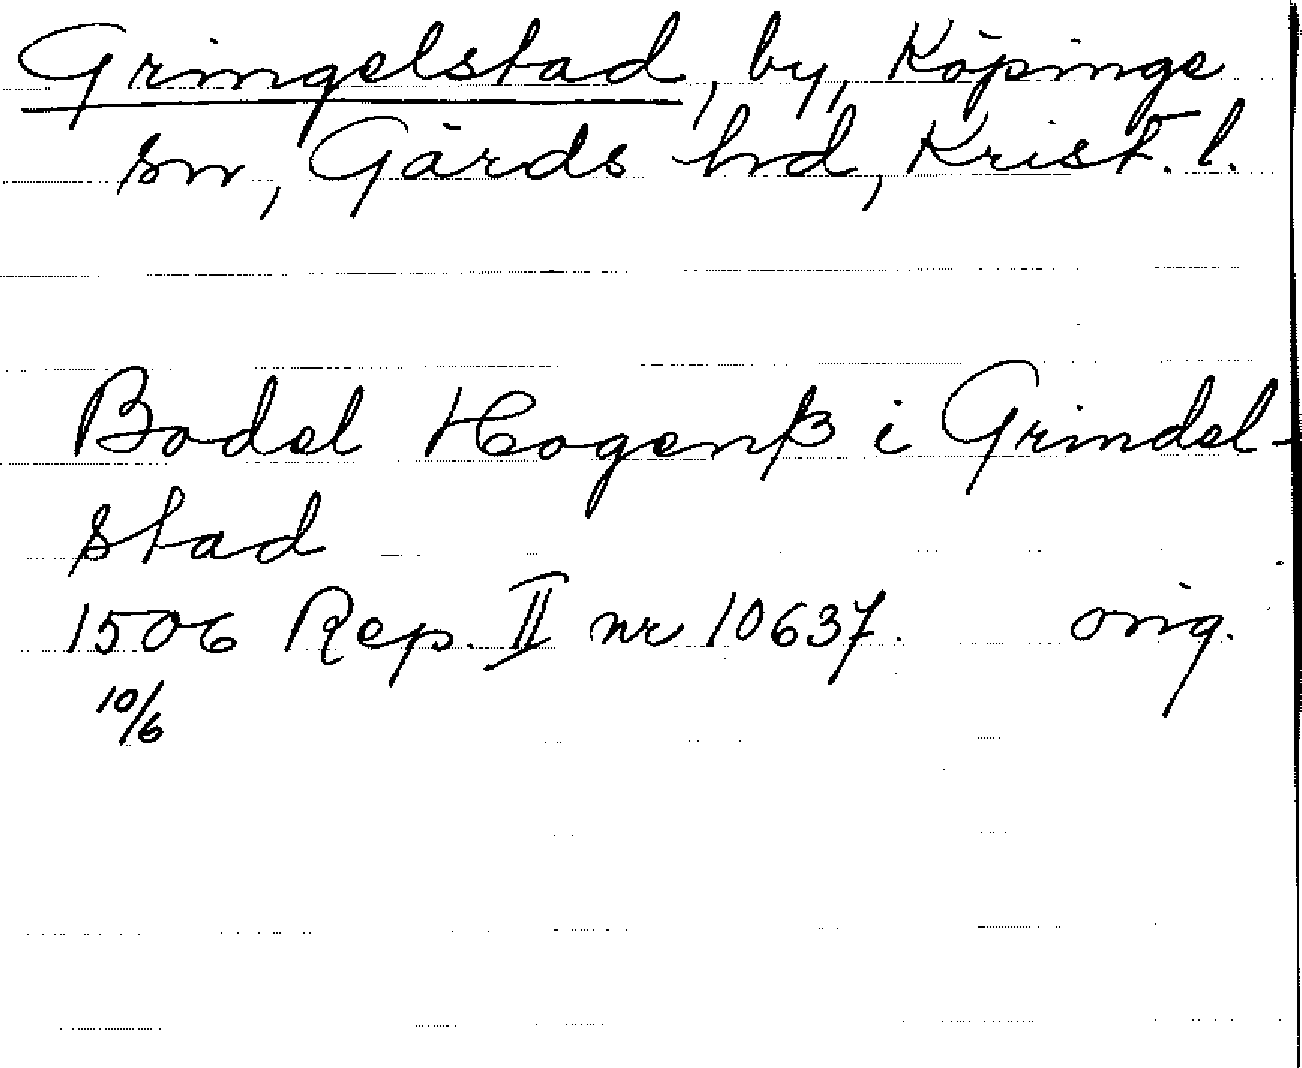 Gringelstad, by, Köpinge
sn, Gärds hrd, Krist. l.
Bodel Hogenß i Grindel-
stad
1506 Rep. II nr 10637. orig.
10/6